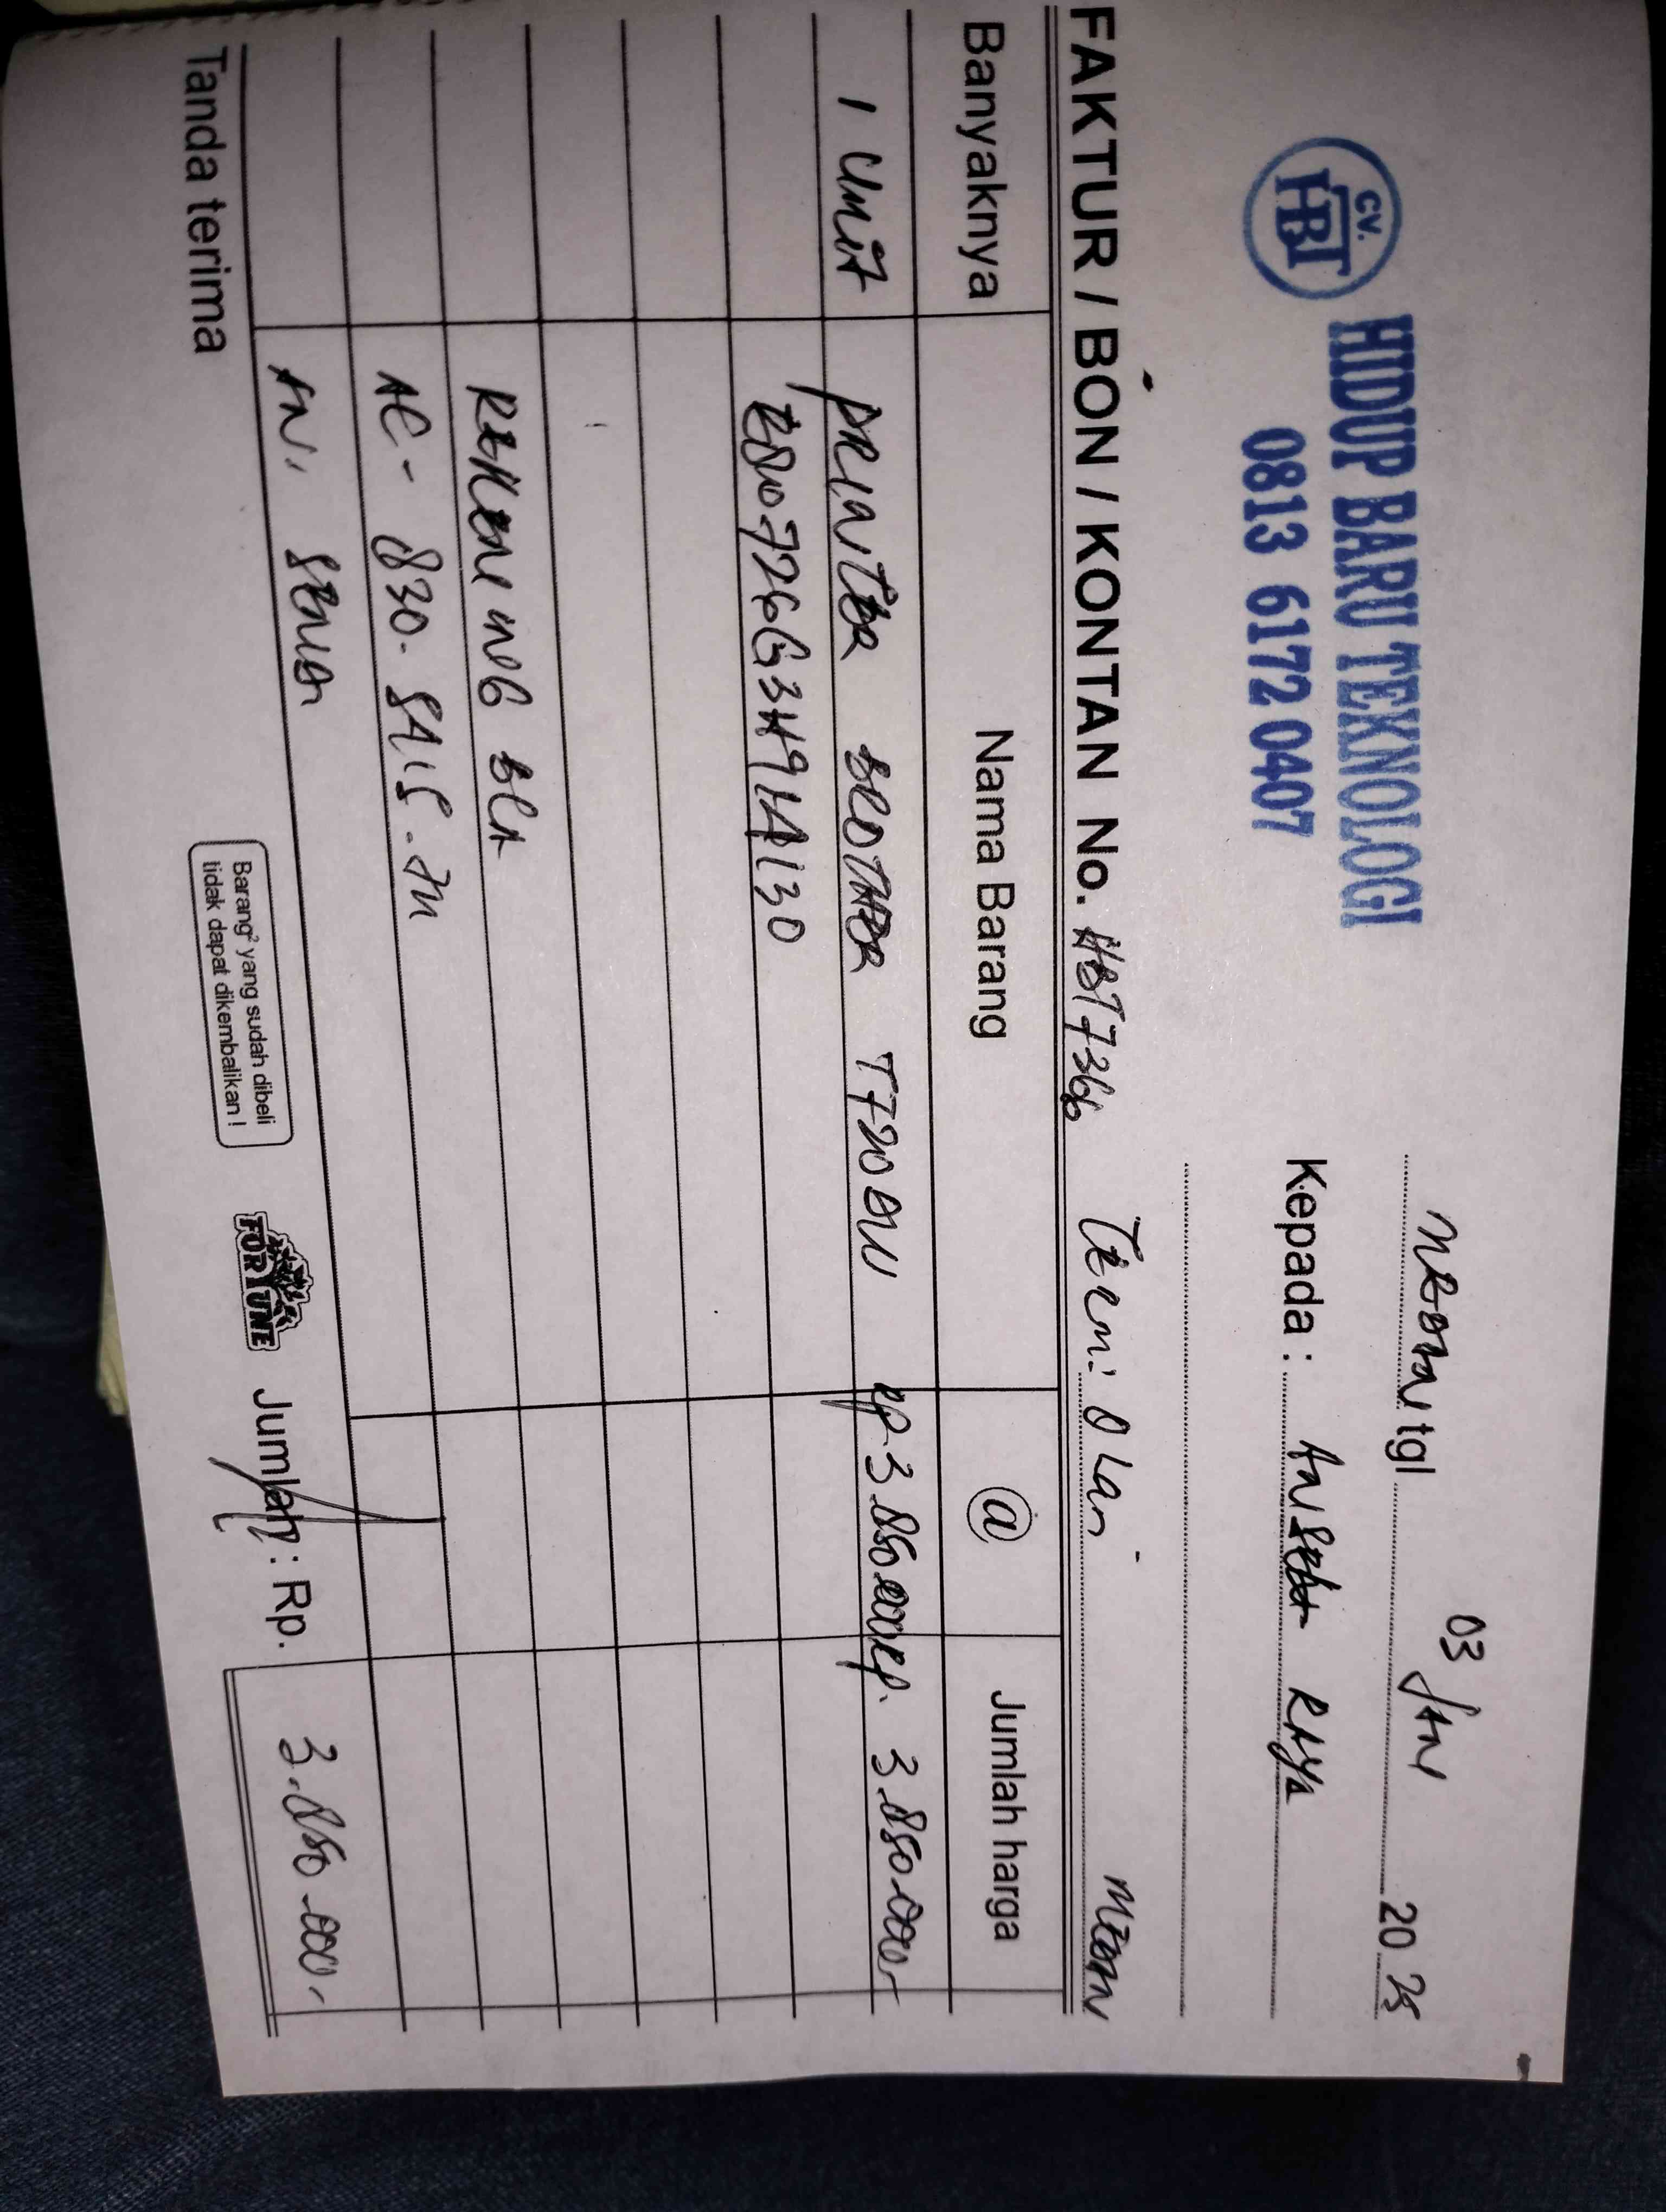 CV. HBT
HIDUP BARU TEKNOLOGI
0813 6172 0407
Medan tgl 03 Jan 2025
Kepada : Raya
FAKTUR / BON / KONTAN No. HBT7366 Term: 0 Hari Medan
Banyaknya Nama Barang @ Jumlah harga
1 Unit Printer Brother T720DW Rp 3.850.000 Rp. 3.850.000,-
Rekening BCA
AC - 830.
AN.
Tanda terima
Barang² yang sudah dibeli
tidak dapat dikembalikan !
FORTUNE
Jumlah : Rp. 3.850.000,-